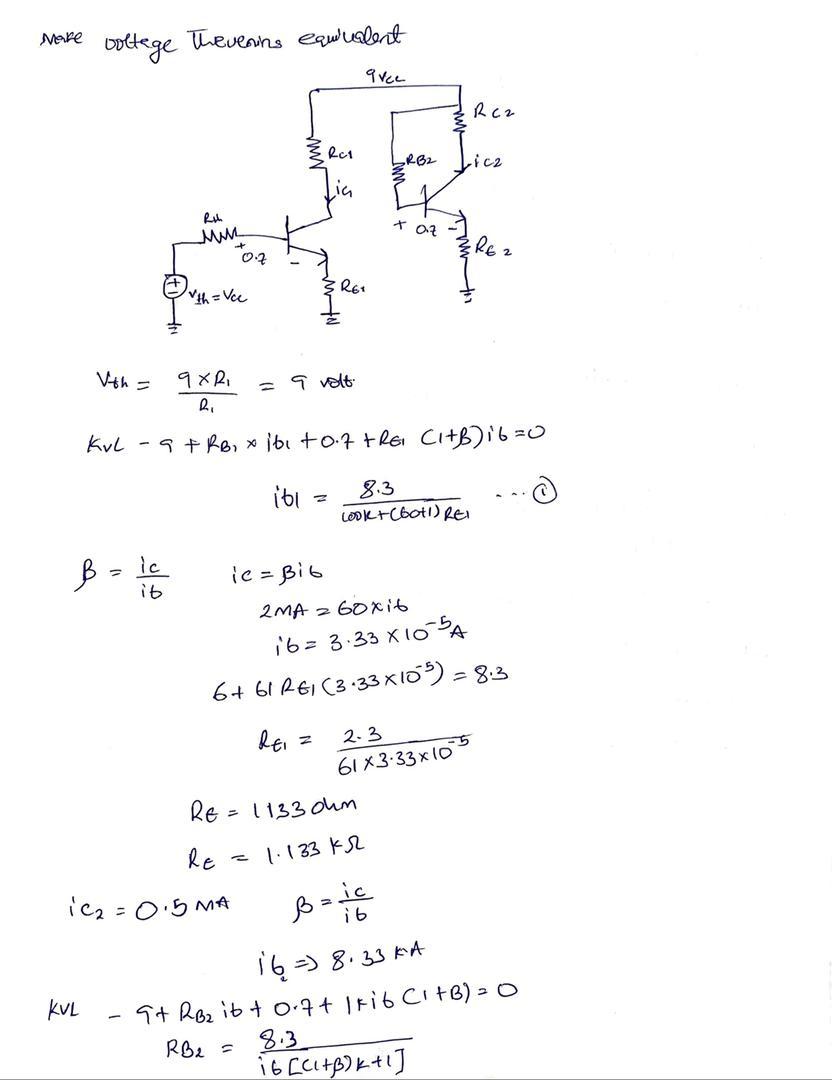 Make voltage Thevenins equivalent
9Vcc
RC2
RC1
RB2
ic2
ic1
Rth
+ 0.7 -
+
0.7 -
RE2
RE1
Vth = Vcc
Vth = 9×R1 / R1 = 9 volt.
KVL - 9 + RB1 × ib1 + 0.7 + RE1 (1+β)ib = 0
ib1 = 8.3 / 100K+(60+1)RE1 ... ①
β = ic / ib ic = βib
2MA = 60×ib
ib = 3.33 × 10⁻⁵A
6+ 61 RE1 (3.33×10⁻⁵) = 8.3
RE1 = 2.3 / 61×3.33×10⁻⁵
RE = 1133 ohm
RE = 1.133 KΩ
ic2 = 0.5 MA β = ic / ib
ib2 => 8.33 KA
KVL - 9+ RB2 ib + 0.7 + 1Kib (1+B) = 0
RB2 = 8.3 / ib[(1+β)K+1]